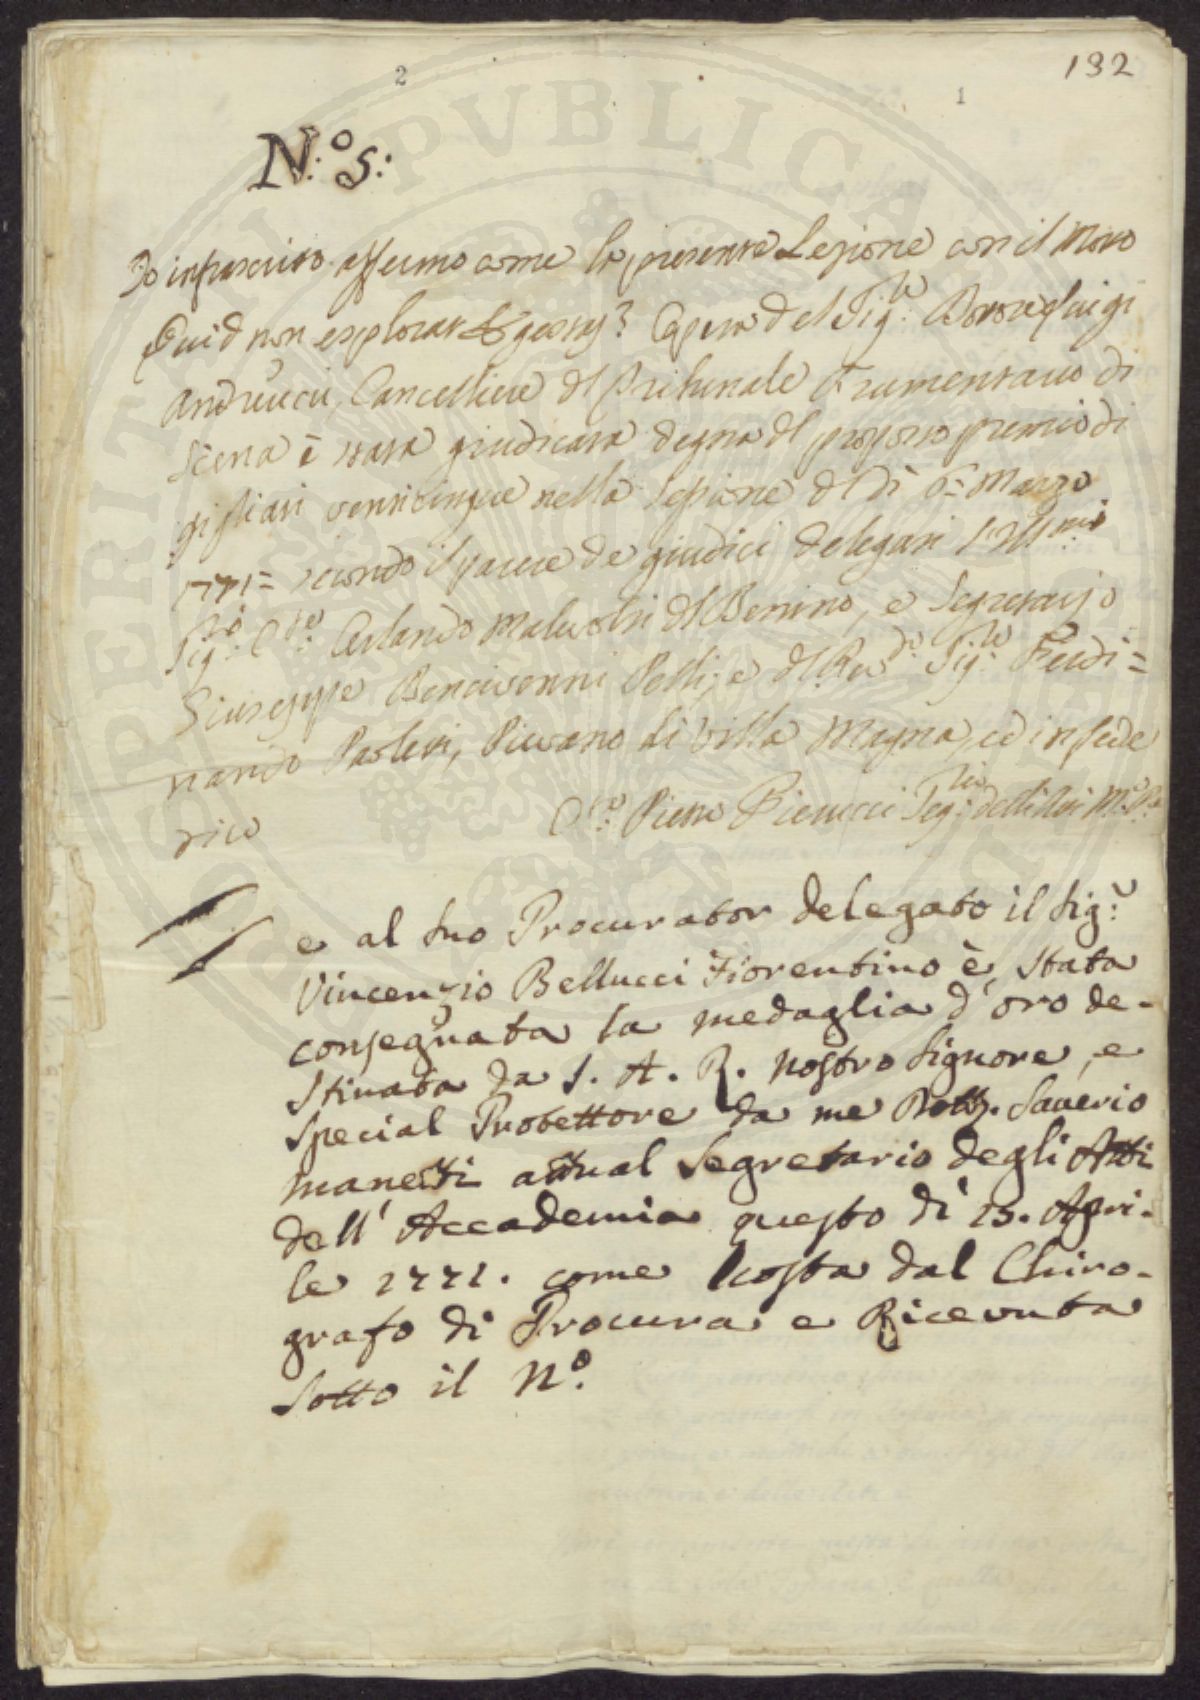 132
2
1
N:º 5:
Io infrascritto affermo come la presente Lezione con il Motto
Quid non explorat Egestas? Opera del Sig:re Dottore Luigi
Andreucci Cancelliere del Tribunale Frumentario di
Siena è stata giudicata degna del proposto premio di
gigliati venticinque nella Sessione del dì 6: Marzo
1771= secondo il parere de giudici delegati
Sig:ri Malevolti del Benino, e Segretario
Giuseppe Bencivenni Pelli, e del Revdo: Sig:re Ferdi=
nando Paoletti, Pievano di Villa Magna, ed in fede
dico
Pietro Pierucci Seg:rio
e al suo Procurator delegato il Sig:r
Vincenzio Bellucci Fiorentino è stata
consegnata la medaglia d'oro de-
stinata da S. A. R. nostro Signore, e
special Protettore da me Dott. Saverio
Manetti attual Segretario degli Atti
dell' Accademia questo dì 15. Apri-
le 1771. come costa dal Chiro-
grafo di Procura e Ricevuta
sotto il Nº.
PROSPERITATI PUBLICAE